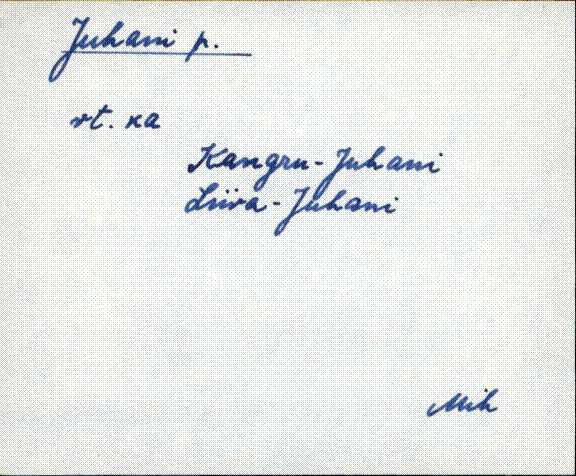 Juhani p.
vt. ka
Kangru-Juhani
Liiva-Juhani
Mih